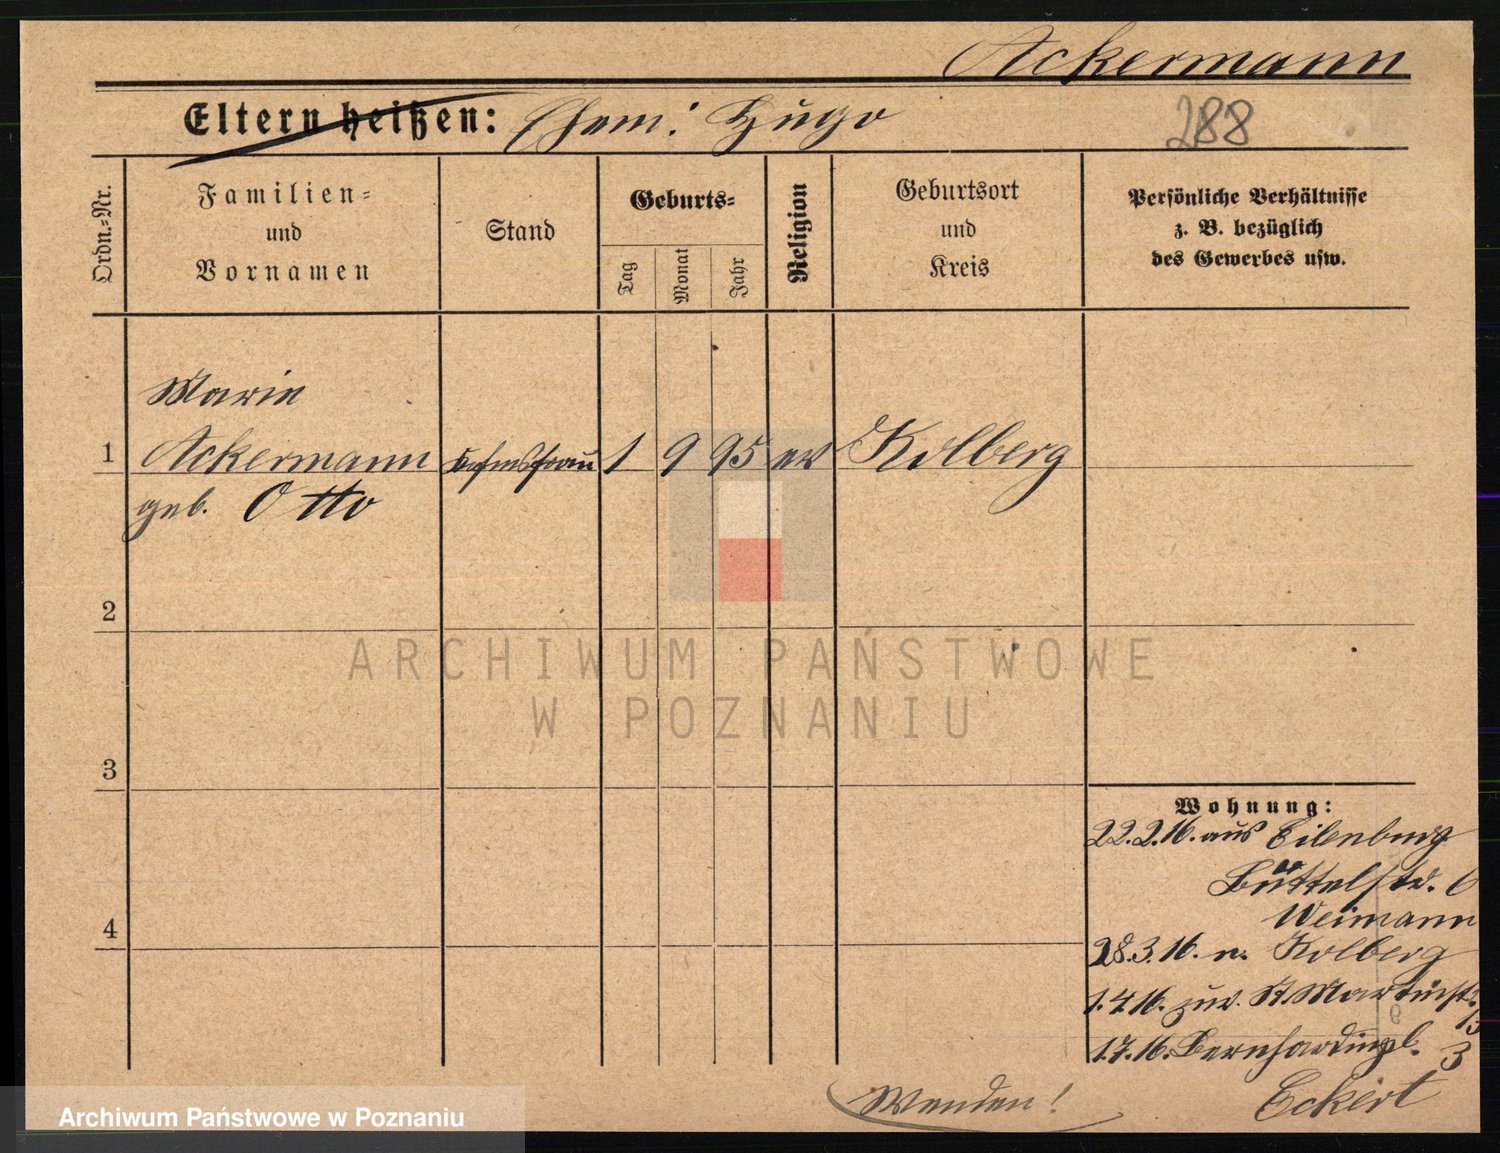 Ackermann
Eltern heißen: Ehem: Hugo
288
Ordn.-Nr.
Familien-
und
Vornamen
Stand
Geburts-
Tag
Monat
Jahr
Religion
Geburtsort
und
Kreis
Persönliche Verhältnisse
z. B. bezüglich
des Gewerbes usw.
Marie
1 Ackermann 1 9 95 ev Kolberg
geb. Otto
2
ARCHIWUM PAŃSTWOWE
W POZNANIU
3
Wohnung:
22.2.16. aus Eilenburg
Büttelstr. 6
Weimann
4
28.3.16. n. Kolberg
1.4.16. zur. St Martinstr.
13
1.7.16. Bernhardinpl. 3
Eckert
Wenden!
Archiwum Państwowe w Poznaniu